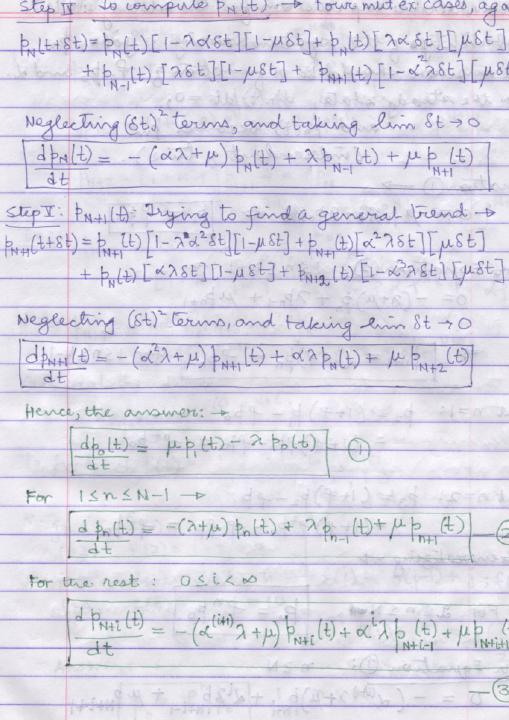 Step IV To compute p_N(t) → Four mut ex cases, aga
p_N(t+δt) = p_N(t)[1-λαδt][1-μδt] + p_N(t)[λαδt][μδt]
+ p_{N-1}(t)[λδt][1-μδt] + p_{N+1}(t)[1-α²λδt][μδt
Neglecting (δt)² terms, and taking lim δt → 0
dp_N(t)/dt = -(αλ+μ) p_N(t) + λp_{N-1}(t) + μp_{N+1}(t)
Step V: p_{N+1}(t): Trying to find a general trend →
p_{N+1}(t+δt) = p_{N+1}(t)[1-λα²δt][1-μδt] + p_{N+1}(t)[α²λδt][μδt]
+ p_N(t)[αλδt][1-μδt] + p_{N+2}(t)[1-α³λδt][μδt]
Neglecting (δt)² terms, and taking lim δt → 0
dp_{N+1}(t)/dt = -(α²λ+μ) p_{N+1}(t) + αλp_N(t) + μp_{N+2}(t)
Hence, the answer: →
dp_0(t)/dt = μp_1(t) - λp_0(t) —①
For 1≤n≤N-1 →
dp_n(t)/dt = -(λ+μ) p_n(t) + λp_{n-1}(t) + μp_{n+1}(t) —②
For the rest: 0≤i<∞
dp_{N+i}(t)/dt = -(α^{(i+1)}λ+μ) p_{N+i}(t) + α^iλp_{N+i-1}(t) + μp_{N+i+1}(t)
—③